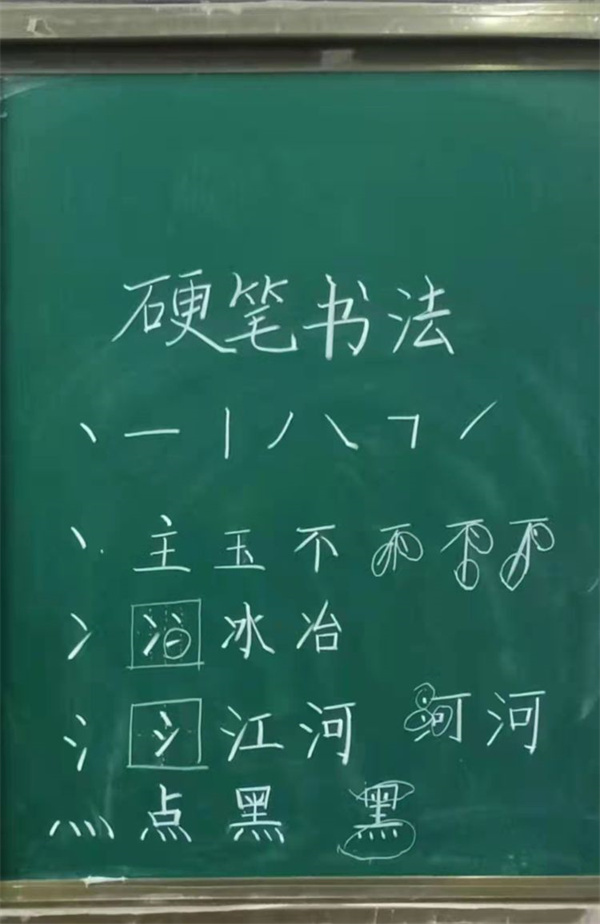 硬笔书法
丶一丨丿㇏㇕㇀
丶主玉不不不不
冫冶冰冶
氵氵江河河河
灬点黑黑